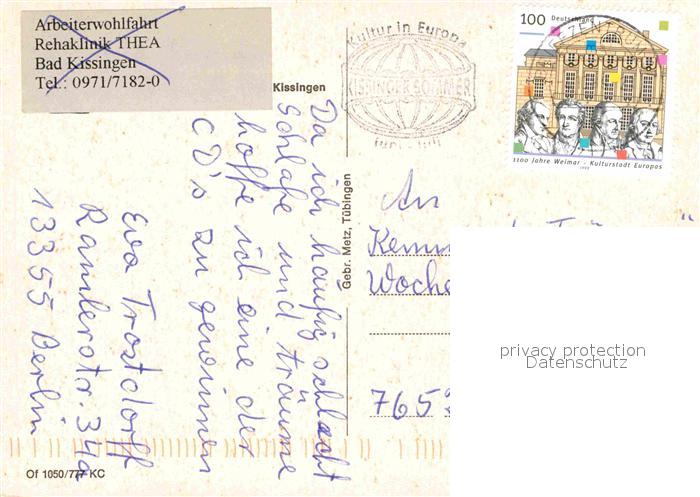 Arbeiterwohlfahrt
Rehaklinik THEA
Bad Kissingen
Tel.: 0971/7182-0
Kissingen
Kultur in Europa
KISSINGER SOMMER
Juni - Juli
100 Deutschland
1100 Jahre Weimar - Kulturstadt Europas
1999
Da ich häufig schlecht
schlafe und träume
hoffe ich eine der
CD's zu gewinnen
Eva Trostdorff
Ramlerstr. 34a
13355 Berlin
Gebr. Metz, Tübingen
An
Woche
765
privacy protection
Datenschutz
Of 1050/777 KC